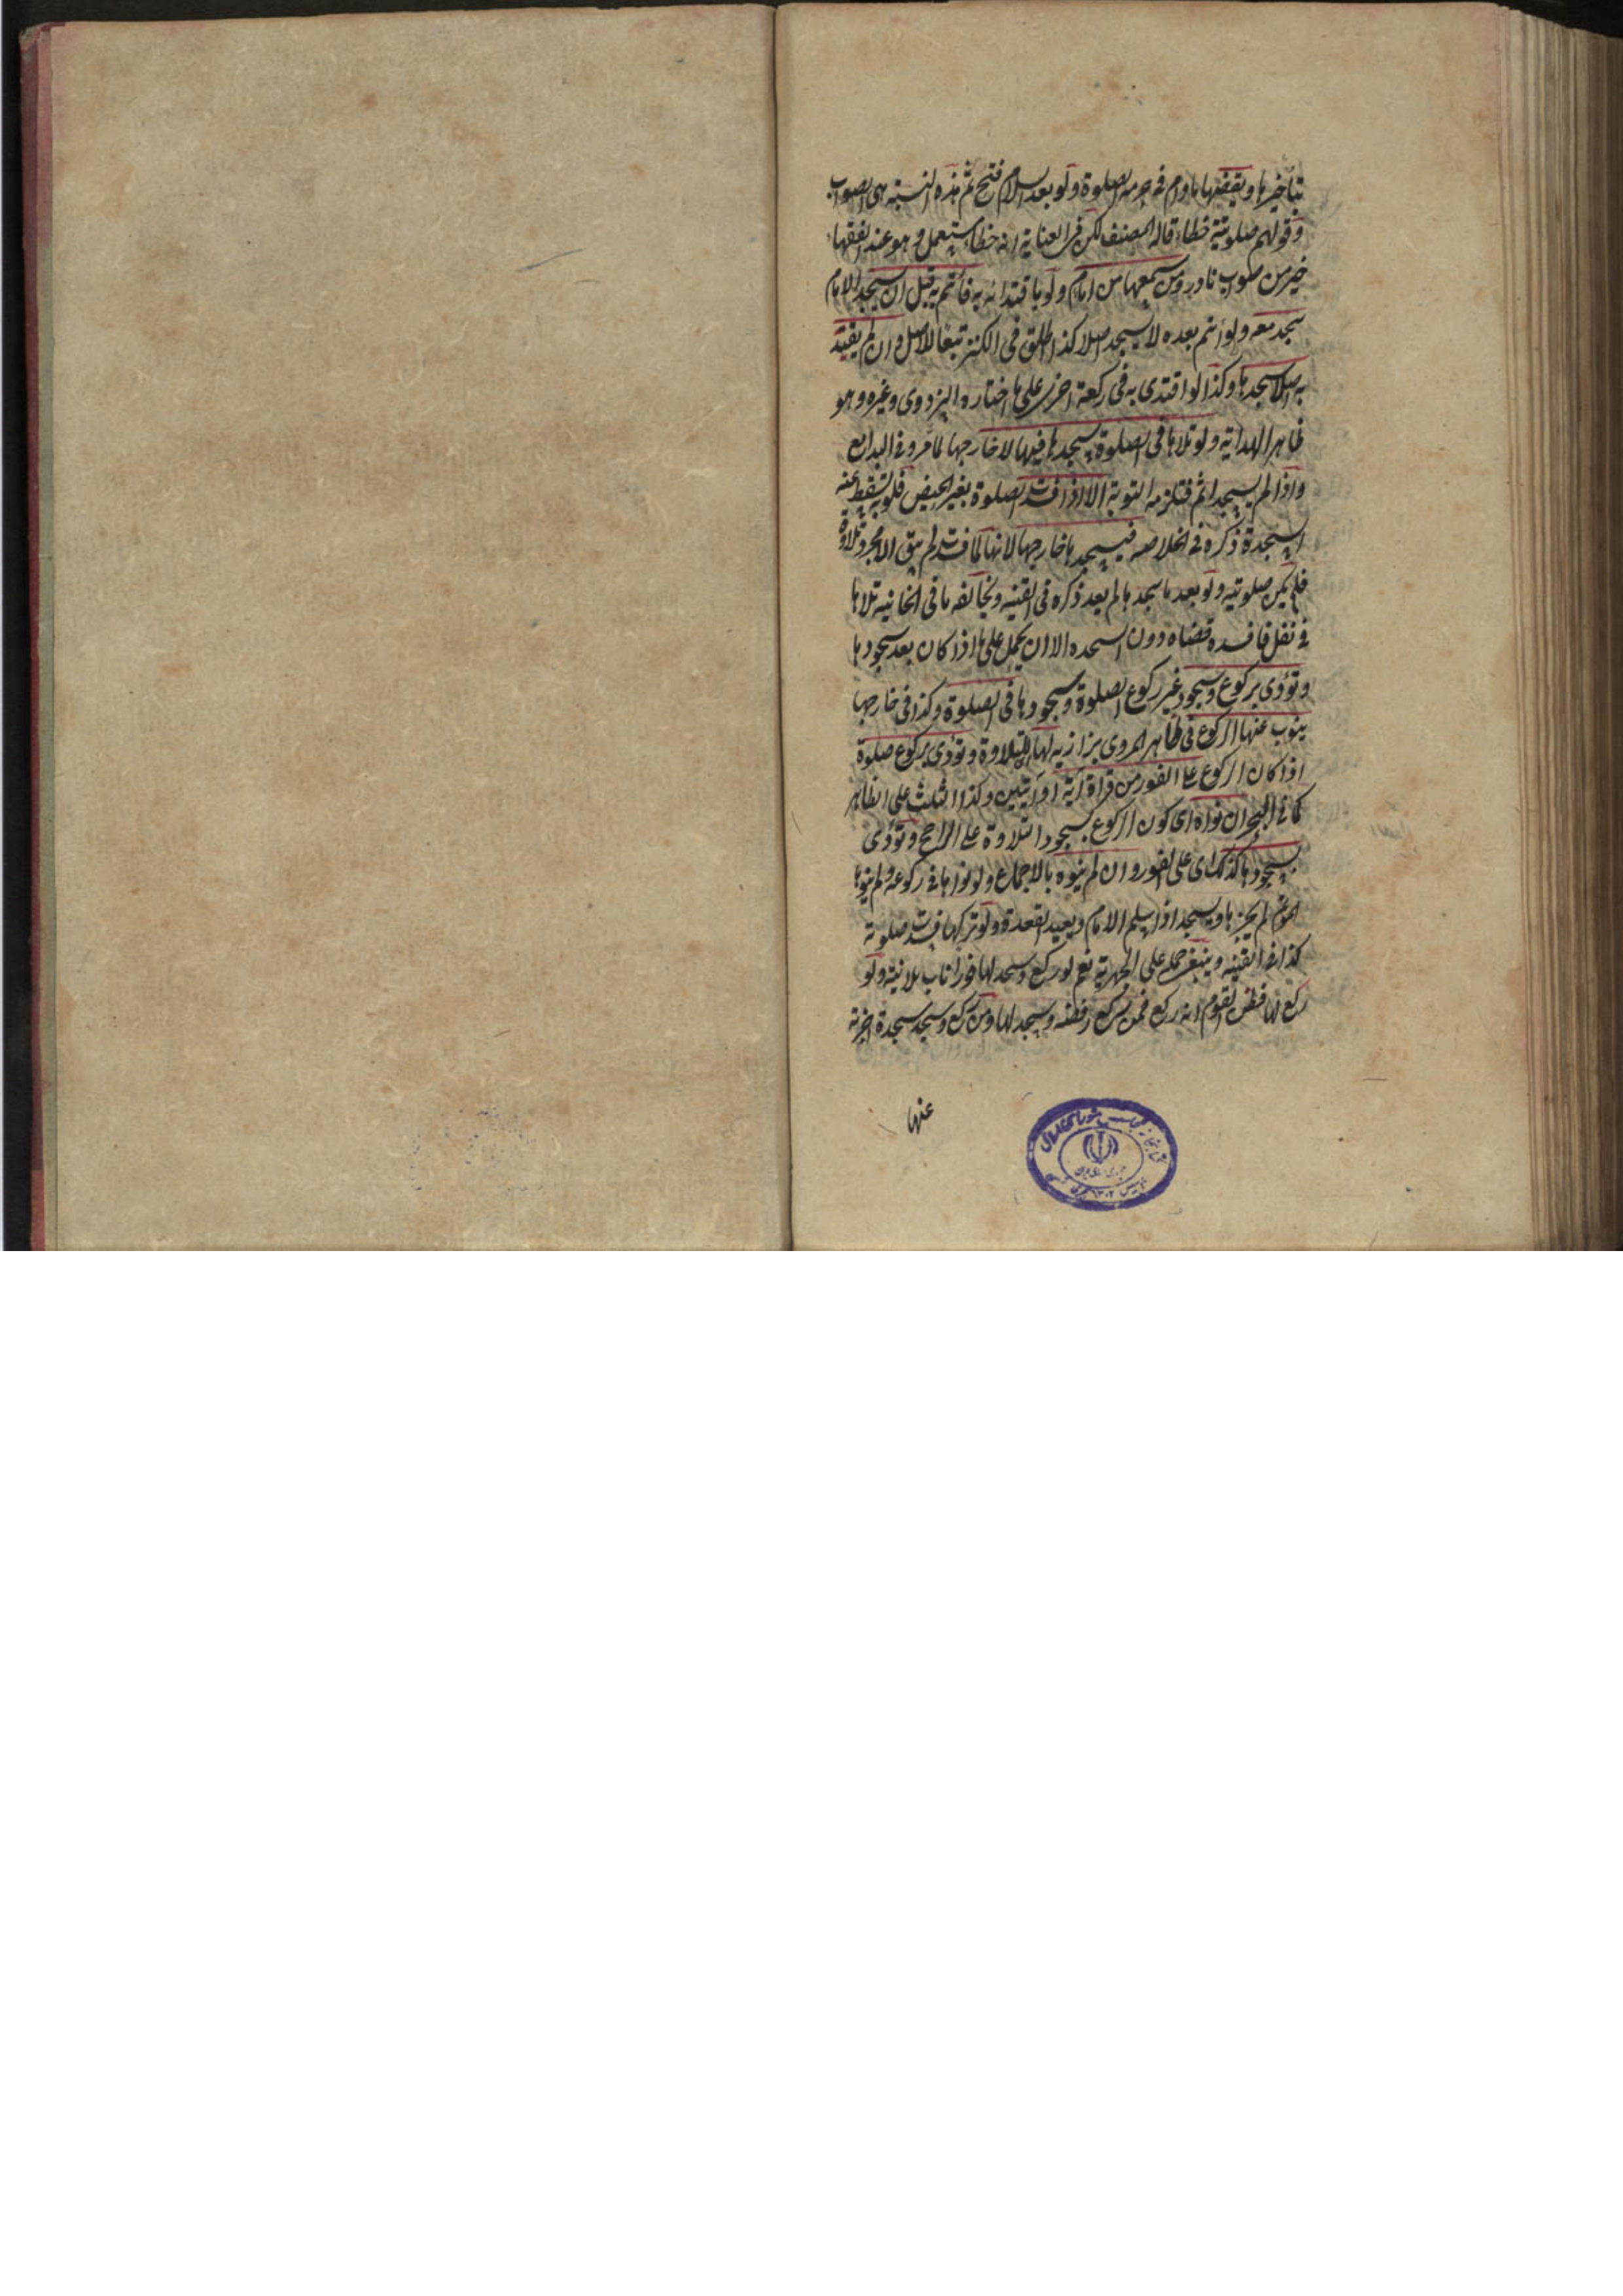 بتأخيرها ويقضيها مادام فى حرمة الصلوة ولو بعد السلام فتح ثم هذه النسبة هى الصواب
وقولهم صلوتية خطاء قاله المصنف لكن فى العناية انه خطاء مستعمل وهو عند الفقهاء
خير من صواب نادر ومن سمعها من امام ولو باقتدائه به فائتم به قبل ان يسجد الامام
سجد معه ولو ائتم بعده لا يسجد اصلا كذا اطلق فى الكنز تبعا للاصل وان لم يقتد
به اصلا سجدها وكذا لو اقتدى به فى ركعة اخرى على ما اختاره البزدوى وغيره وهو
ظاهر الهداية ولو تلاها فى الصلوة سجدها فيها لا خارجها لما مر وفى البدايع
واذا لم يسجد اثم فتلزمه التوبة الا اذا فسدت الصلوة بغير الحيض فلو به تسقط عنه
السجدة ذكره فى الخلاصه فيسجدها خارجها لانها لما فسدت لم يبق الا مجرد تلاوة
فلم يكن صلوتيه ولو بعد ما سجدها لم يعد ذكره فى القنيه ويخالفه ما فى الخانيه تلاها
فى نفل فافسده قضاه دون السجده الا ان يحمل على ما اذا كان بعد سجودها
وتؤدى بركوع وسجود غير ركوع الصلوة وسجودها فى الصلوة وكذا فى خارجها
ينوب عنها الركوع فى ظاهر المروى بزازيه لها للتلاوة وتؤدى بركوع صلوة
اذا كان الركوع على الفور من قراة آية او آيتين وكذا الثلث على الظاهر
كما فى البحر ان نواه اى كون الركوع بسجود التلاوة على الراجح وتؤدى
بسجودها كذلك اى على الفور وان لم ينوه بالاجماع ولو نواها فى ركوعه ولم ينوها
المؤتم لم يجزها ويسجد اذا سلم الامام ويعيد القعدة ولو تركها فسدت صلوته
كذا فى القنيه وينبغى حمله على الجهرية نعم لو ركع وسجد لها فورا ناب بلا نية ولو
ركع لها فظن القوم انه ركع فمن ركع رفضه وسجد لها ومن ركع وسجد سجدة اجزته
عنها